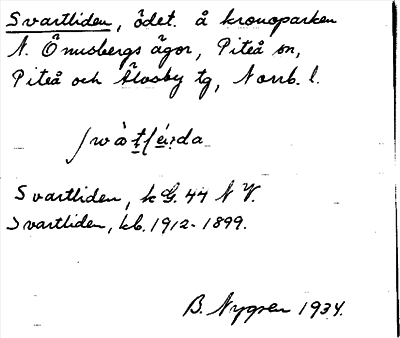 Svartliden, ödet. å kronoparken
N. Önusbergs ägor, Piteå sn,
Piteå och Älvsby tg, Norrb. l.
Svartliden, k G. 44 N V.
Svartliden, kb. 1912-1899.
B. Nygren 1934.